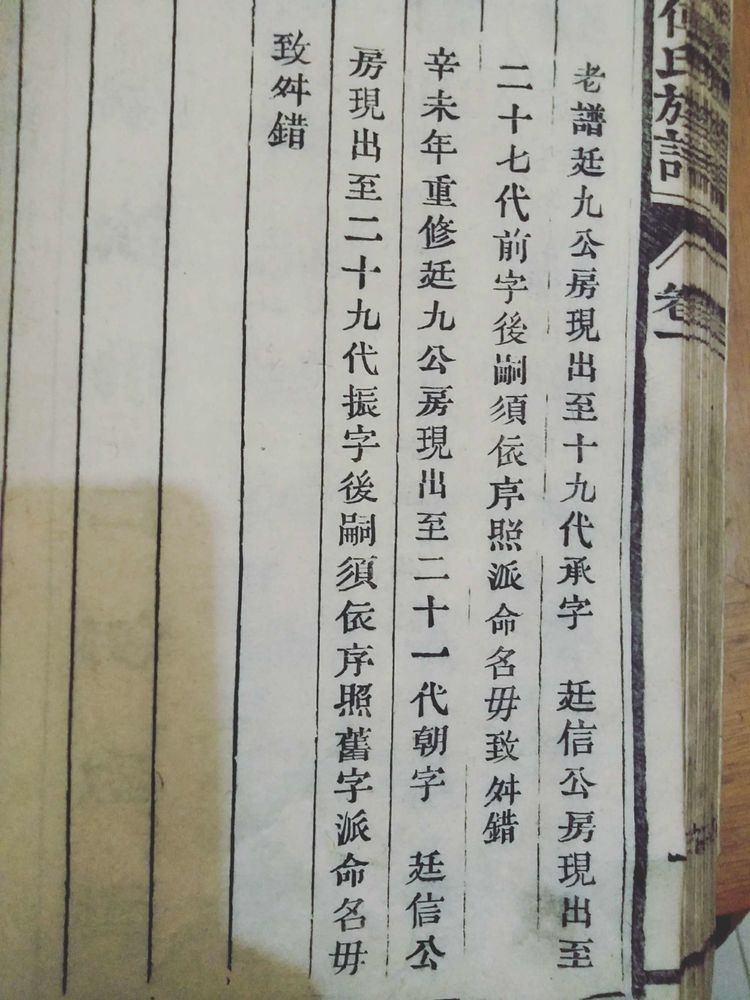 氏族譜
卷一
老譜廷九公房現出至十九代承字　廷信公房現出至
二十七代前字後嗣須依序照派命名毋致舛錯
辛未年重修廷九公房現出至二十一代朝字　廷信公
房現出至二十九代振字後嗣須依序照舊字派命名毋
致舛錯